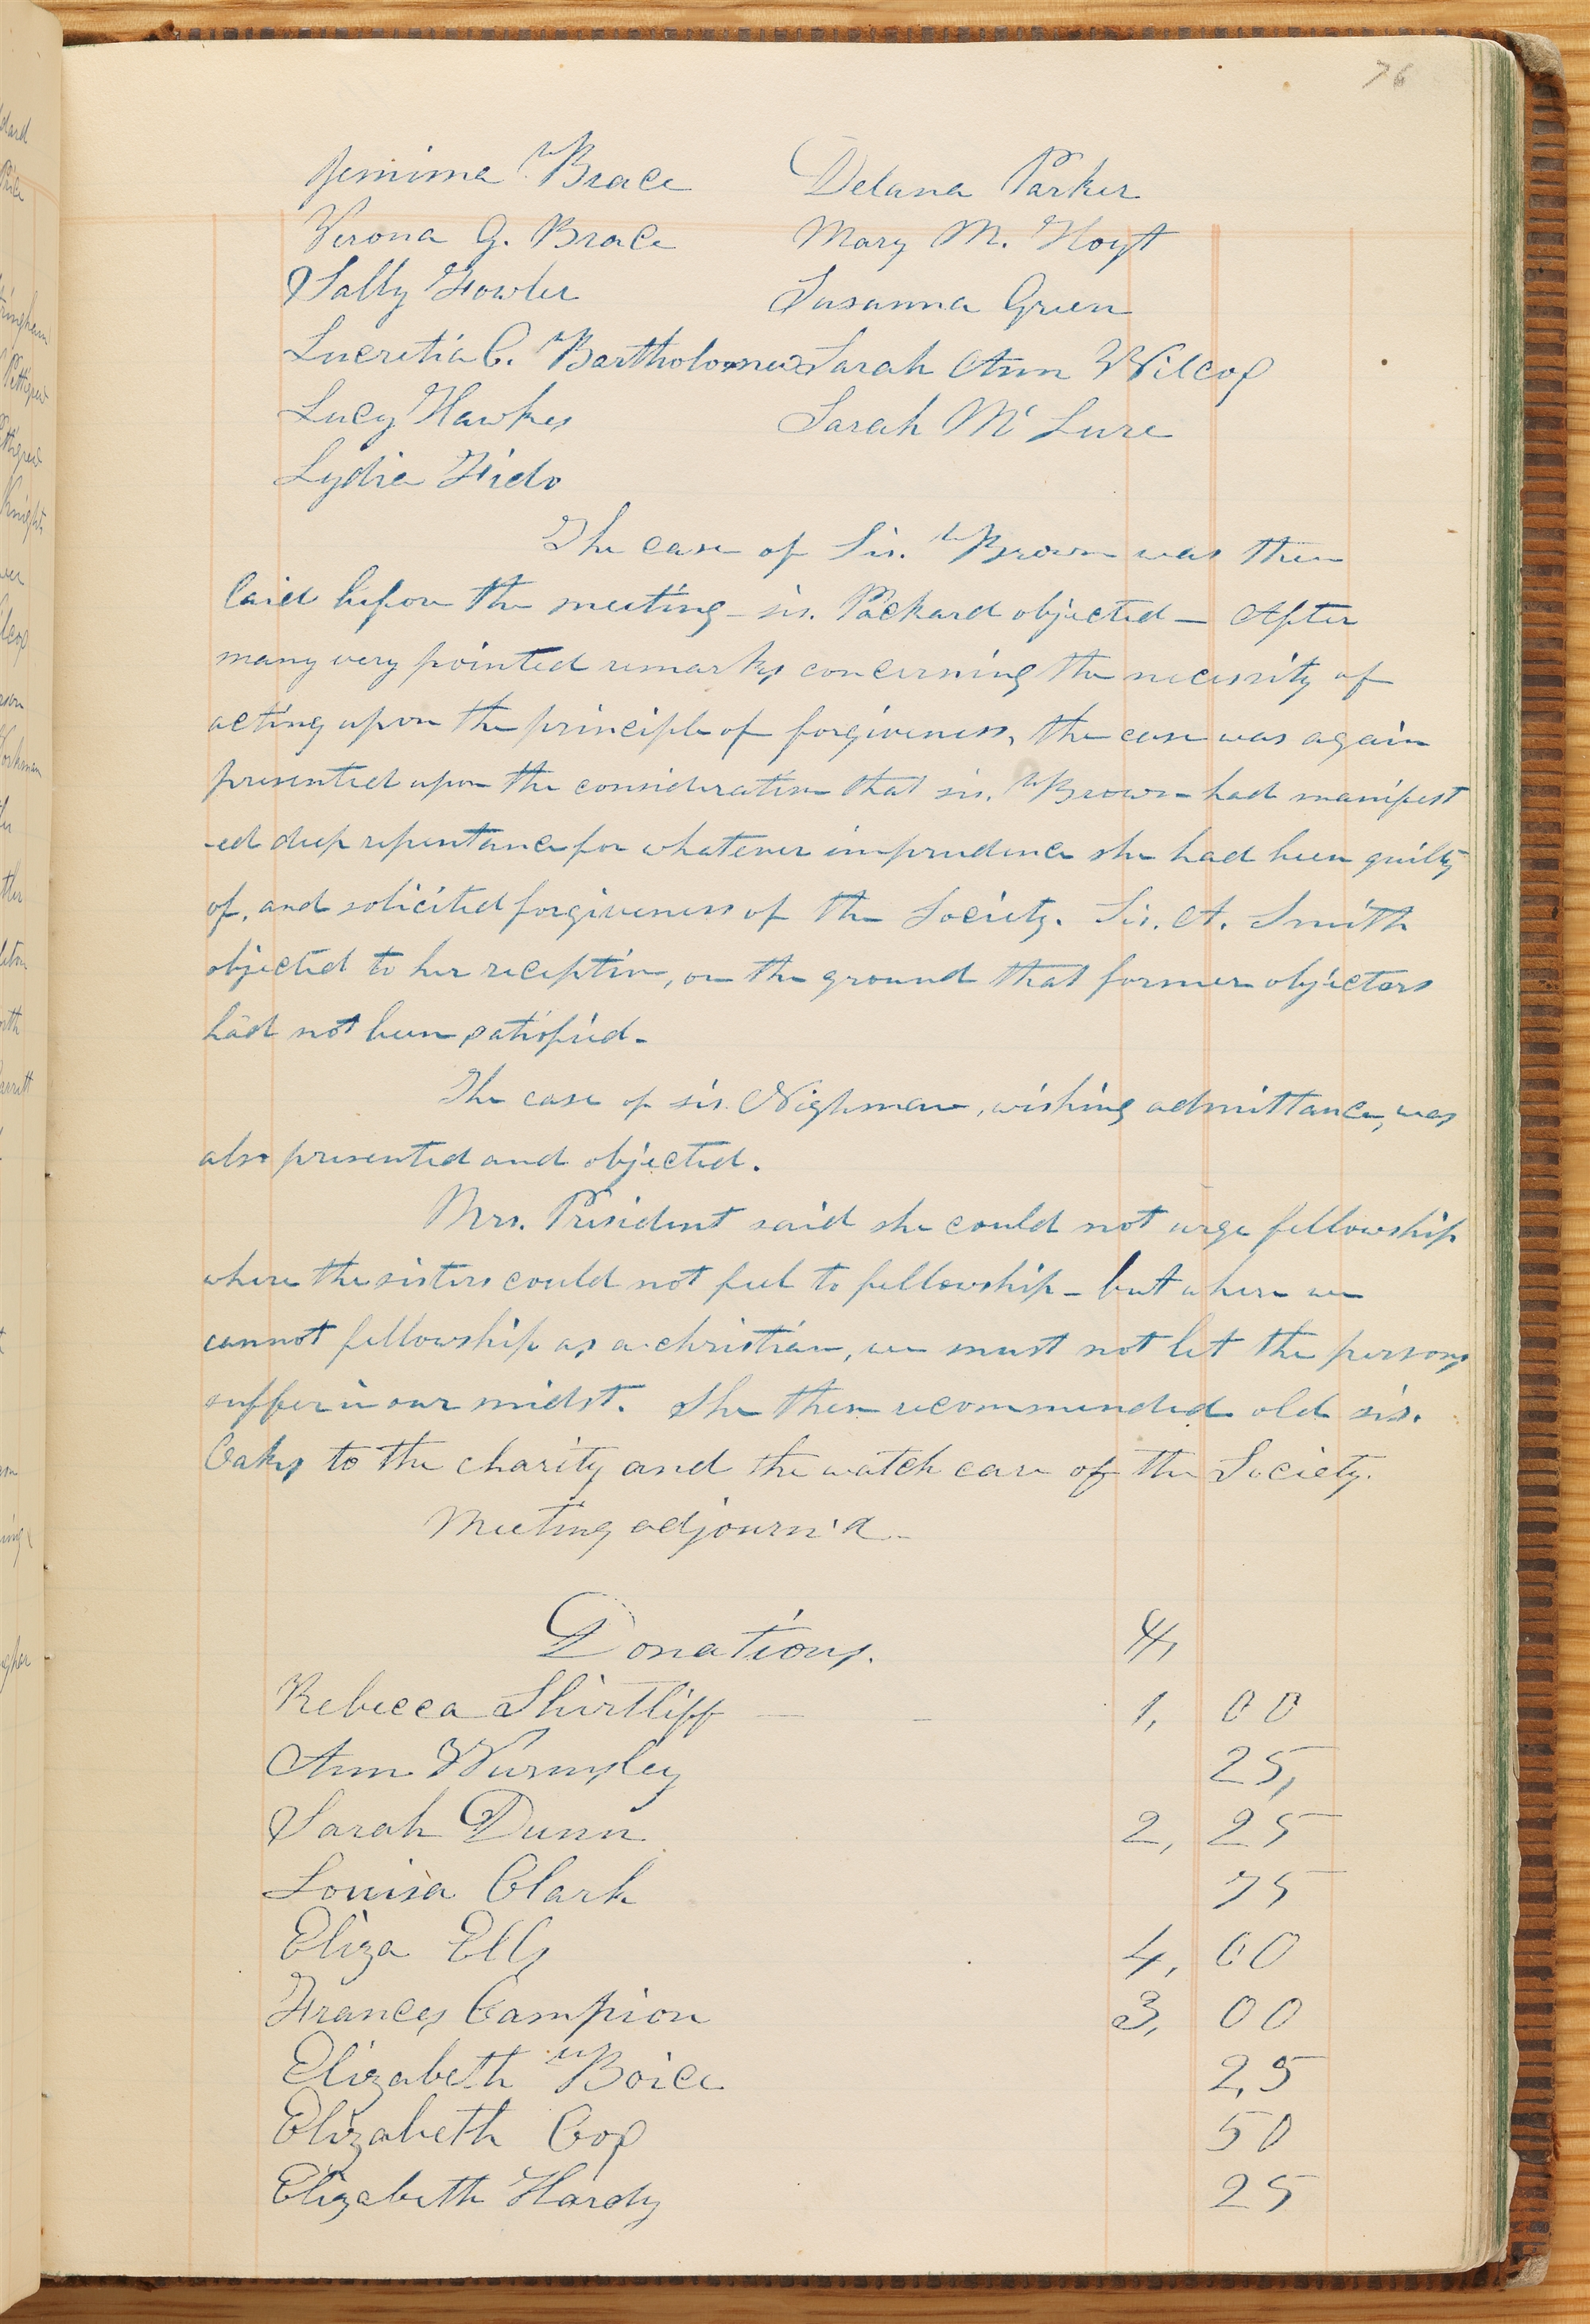 76
Jemima Brace Delana Parker
Verona G. Brace Mary M. Hoyt
Sally Fowler Susanna Green
Lucretia C. Bartholomew Sarah Ann Wilcox
Lucy Hawkes Sarah McLure
Lydia Fido
The case of Sis. Brown was then
laid before the meeting - sis. Packard objected — After
many very pointed remarks concerning the necessity of
acting upon the principle of forgiveness, the case was again
presented upon the consideration that sis. Brown had manifest
-ed deep repentance for whatever imprudence she had been guilty
of, and solicited forgiveness of the Society. Sis. A. Smith
objected to her reception, on the ground that former objectors
had not been satisfied.
The case of sis. Nighman, wishing admittance, was
also presented and objected.
Mrs. President said she could not urge fellowship
where the sisters could not feel to fellowship - but where we
cannot fellowship as a christian, we must not let the persons
suffer in our midst. She then recommended old sis.
Oaks to the charity and the watch care of the Society.
Meeting adjourn'd -
Donations. $,
Rebecca Shirtliff — — 1, 00
Ann Wurmsley 25,
Sarah Dunn 2, 25
Louisa Clark 75
Eliza Ells 4, 00
Frances Campion 3, 00
Elizabeth Boice 2,5
Elizabeth Cox 50
Elizabeth Hardy 25